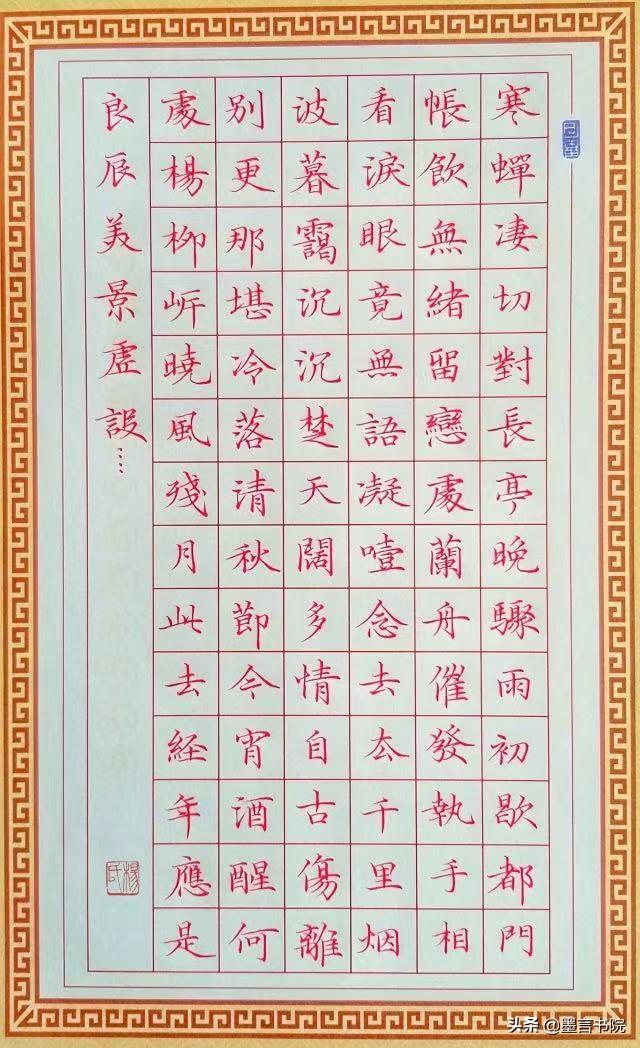 寒蟬凄切對長亭晚驟雨初歇都門
帳飲無緒留戀處蘭舟催發執手相
看淚眼竟無語凝噎念去去千里烟
波暮靄沉沉楚天闊多情自古傷離
別更那堪冷落清秋節今宵酒醒何
處楊柳岍曉風殘月此去経年應是
良辰美景虛設……
楊氏
头条 @墨言书院